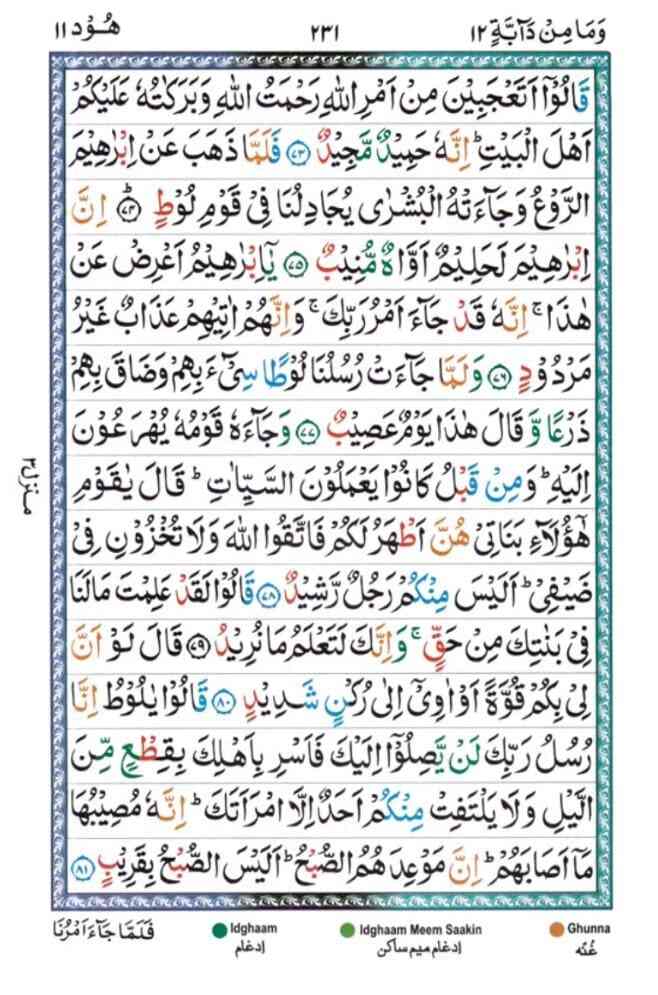 وَمَا مِنْ دَآبَّةٍ ١٢ ٢٣١ هُوْد ١١
قَالُوْٓا اَتَعْجَبِيْنَ مِنْ اَمْرِ اللهِ رَحْمَتُ اللهِ وَبَرَكٰتُهٗ عَلَيْكُمْ
اَهْلَ الْبَيْتِ ؕ اِنَّهٗ حَمِيْدٌ مَّجِيْدٌ ﴿٧٣﴾ فَلَمَّا ذَهَبَ عَنْ اِبْرٰهِيْمَ
الرَّوْعُ وَجَآءَتْهُ الْبُشْرٰى يُجَادِلُنَا فِيْ قَوْمِ لُوْطٍ ؕ ﴿٧٤﴾ اِنَّ
اِبْرٰهِيْمَ لَحَلِيْمٌ اَوَّاهٌ مُّنِيْبٌ ﴿٧٥﴾ يٰٓاِبْرٰهِيْمُ اَعْرِضْ عَنْ
هٰذَا ۚ اِنَّهٗ قَدْ جَآءَ اَمْرُ رَبِّكَ ۚ وَاِنَّهُمْ اٰتِيْهِمْ عَذَابٌ غَيْرُ
مَرْدُوْدٍ ﴿٧٦﴾ وَلَمَّا جَآءَتْ رُسُلُنَا لُوْطًا سِيْٓءَ بِهِمْ وَضَاقَ بِهِمْ
ذَرْعًا وَّقَالَ هٰذَا يَوْمٌ عَصِيْبٌ ﴿٧٧﴾ وَجَآءَهٗ قَوْمُهٗ يُهْرَعُوْنَ
اِلَيْهِ ؕ وَمِنْ قَبْلُ كَانُوْا يَعْمَلُوْنَ السَّيِّاٰتِ ؕ قَالَ يٰقَوْمِ
هٰٓؤُلَآءِ بَنَاتِيْ هُنَّ اَطْهَرُ لَكُمْ فَاتَّقُوا اللهَ وَلَا تُخْزُوْنِ فِيْ
ضَيْفِيْ ؕ اَلَيْسَ مِنْكُمْ رَجُلٌ رَّشِيْدٌ ﴿٧٨﴾ قَالُوْا لَقَدْ عَلِمْتَ مَا لَنَا
فِيْ بَنٰتِكَ مِنْ حَقٍّ ۚ وَاِنَّكَ لَتَعْلَمُ مَا نُرِيْدُ ﴿٧٩﴾ قَالَ لَوْ اَنَّ
لِيْ بِكُمْ قُوَّةً اَوْ اٰوِيْٓ اِلٰى رُكْنٍ شَدِيْدٍ ﴿٨٠﴾ قَالُوْا يٰلُوْطُ اِنَّا
رُسُلُ رَبِّكَ لَنْ يَّصِلُوْٓا اِلَيْكَ فَاَسْرِ بِاَهْلِكَ بِقِطْعٍ مِّنَ
الَّيْلِ وَلَا يَلْتَفِتْ مِنْكُمْ اَحَدٌ اِلَّا امْرَاَتَكَ ؕ اِنَّهٗ مُصِيْبُهَا
مَآ اَصَابَهُمْ ؕ اِنَّ مَوْعِدَهُمُ الصُّبْحُ ؕ اَلَيْسَ الصُّبْحُ بِقَرِيْبٍ ﴿٨١﴾
منزل ٣
فَلَمَّا جَآءَ اَمْرُنَا
Idghaam
ادغام
Idghaam Meem Saakin
ادغام میم ساکن
Ghunna
غُنّه